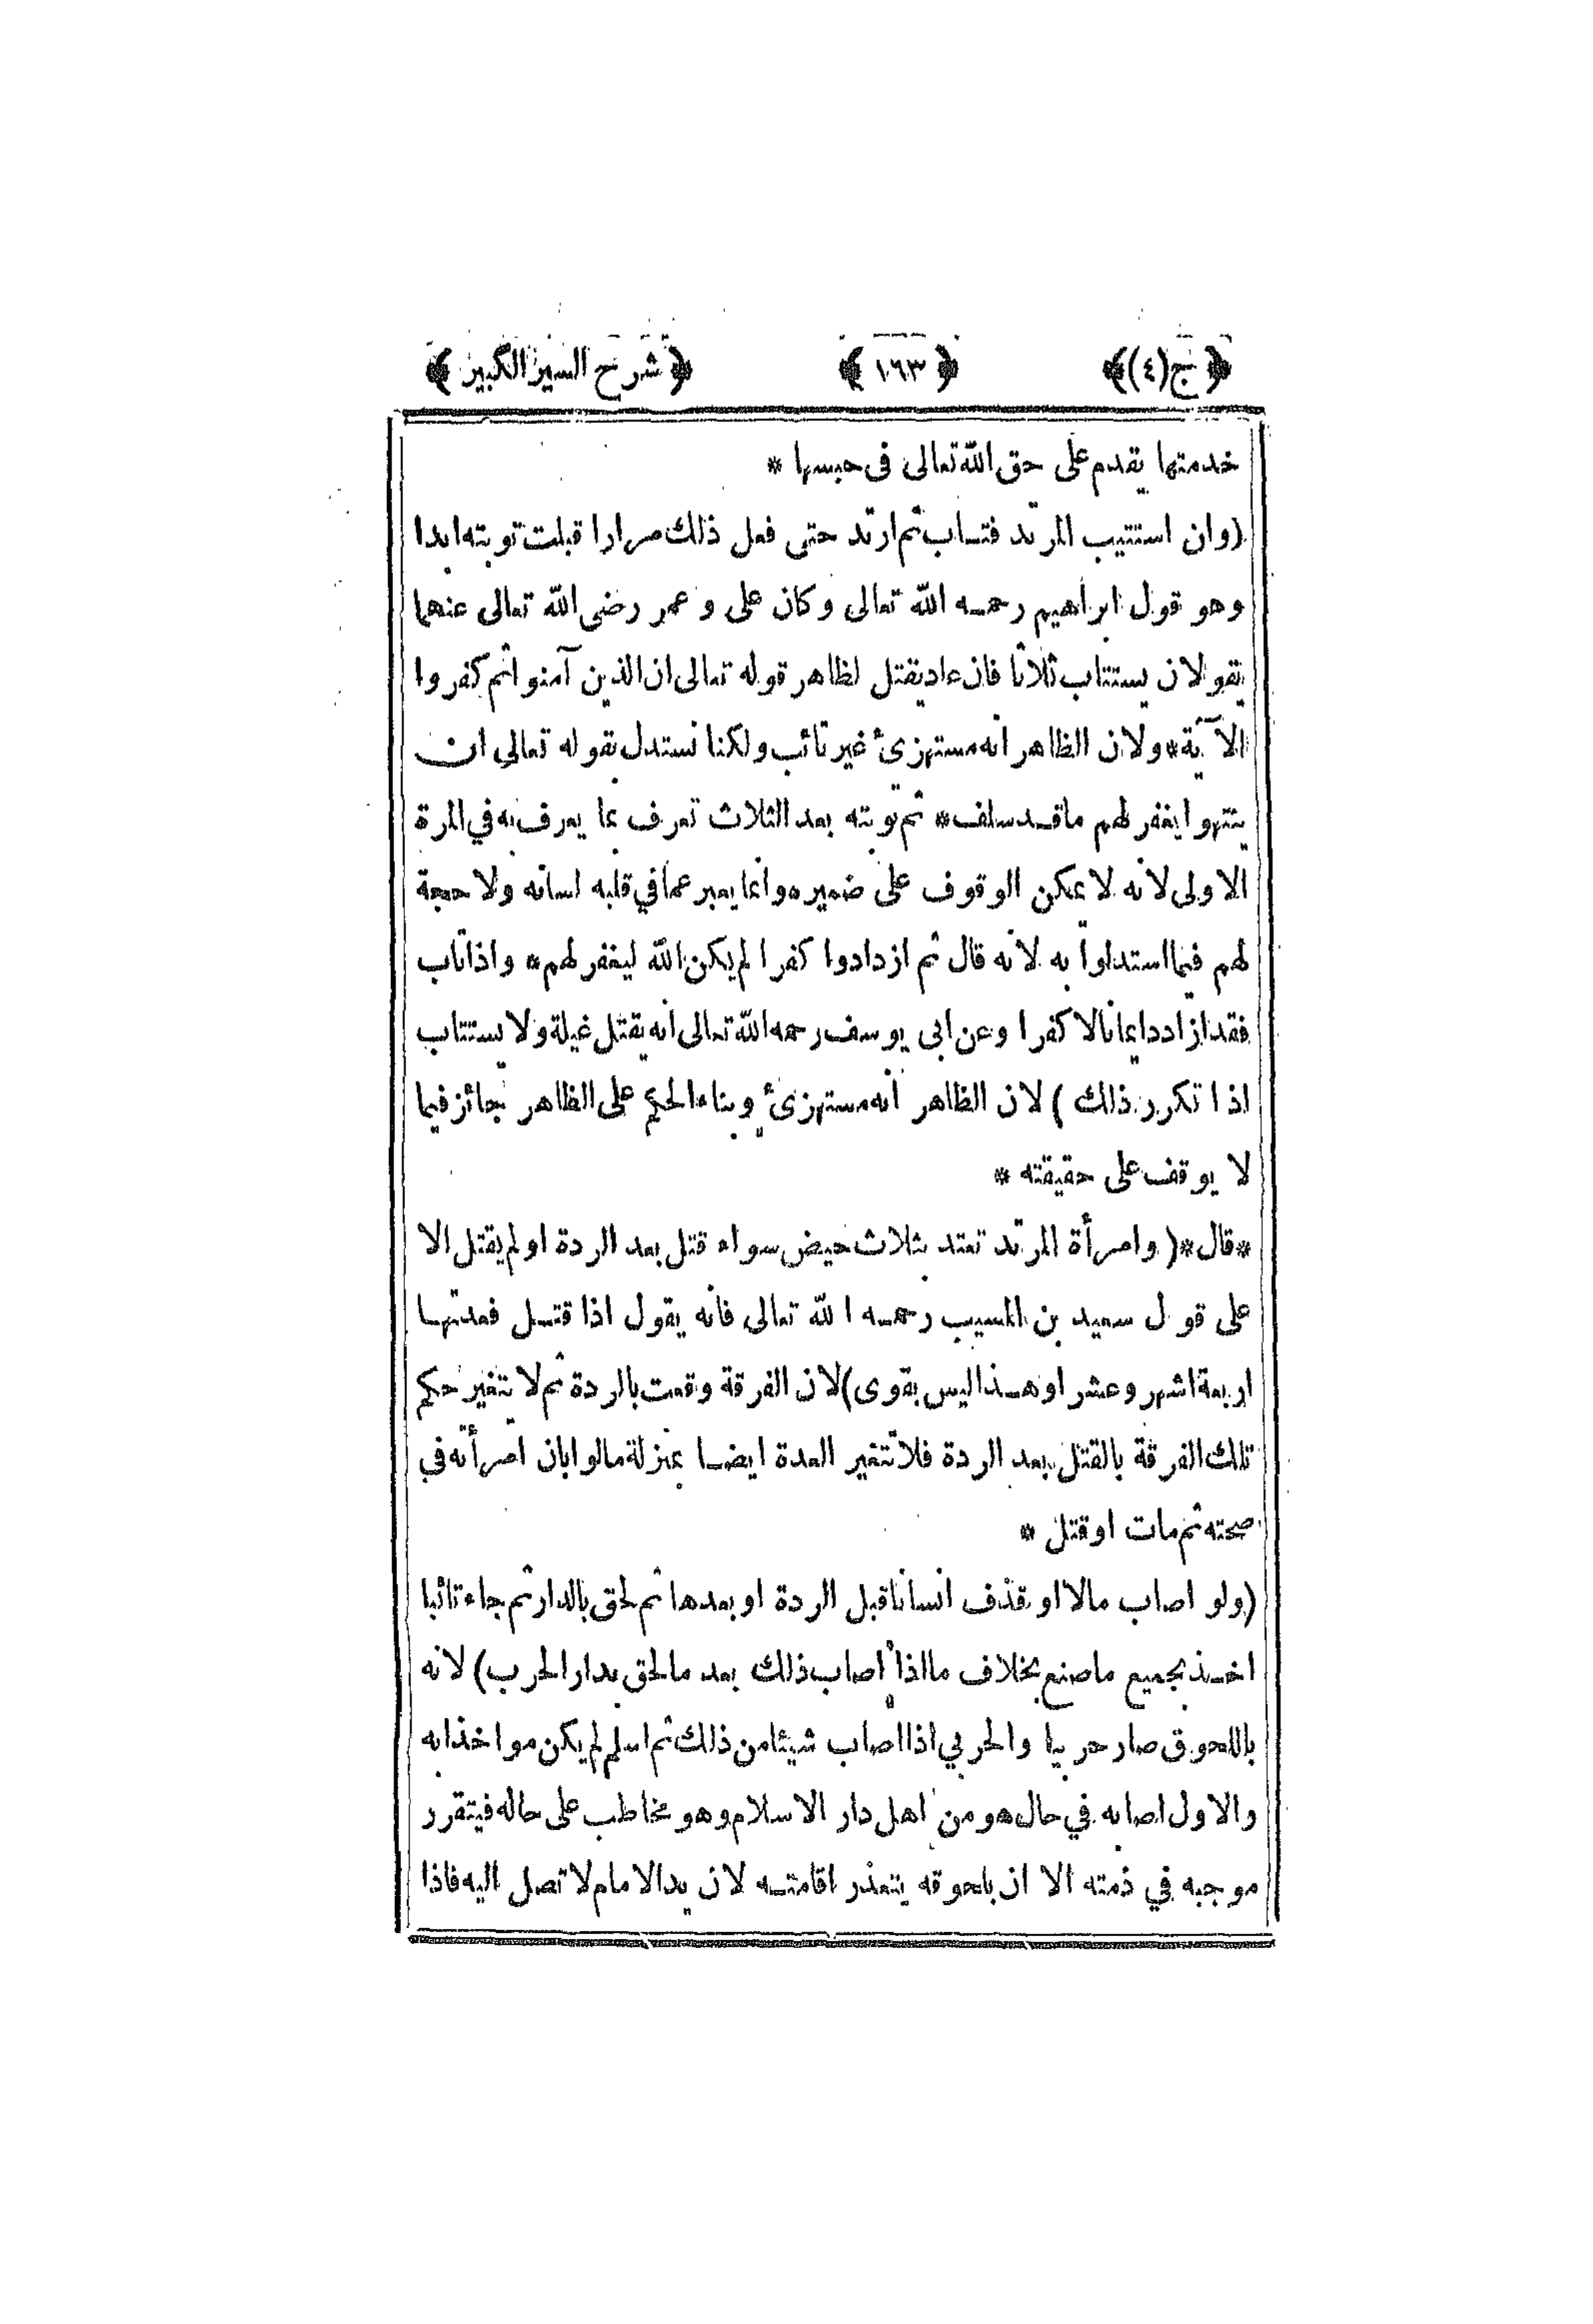 ﴿ج(٤)﴾ ﴿١٦٣﴾ ﴿شرح السير الكبير﴾
خدمتها يقدم على حق الله تعالى فى حبسها *
(وان استتيب المرتد فتاب ثم ارتد حتى فعل ذلك مرارا قبلت توبته ابدا
وهو قول ابراهيم رحمه الله تعالى وكان على و عمر رضى الله تعالى عنهما
يقولان يستتاب ثلاثا فان عاد يقتل لظاهر قوله تعالى ان الذين آمنوا ثم كفروا
الآية* ولان الظاهر انه مستهزئ غير تائب ولكنا نستدل بقوله تعالى ان
ينتهوا يغفر لهم ما قد سلف* ثم توبته بعد الثلاث تعرف بما يعرف به في المرة
الاولى لانه لا يمكن الوقوف على ضميره وانما يعبر عما في قلبه لسانه ولا حجة
لهم فيما استدلوا به لانه قال ثم ازدادوا كفرا لم يكن الله ليغفر لهم* واذا تاب
فقد ازداد ايمانا لا كفرا وعن ابى يوسف رحمه الله تعالى انه يقتل غيلة ولا يستتاب
اذا تكرر ذلك ) لان الظاهر انه مستهزئ وبناء الحكم على الظاهر جائز فيما
لا يوقف على حقيقته *
*قال* (وامرأة المرتد تعتد بثلاث حيض سواء قتل بعد الردة او لم يقتل الا
على قول سعيد بن المسيب رحمه الله تعالى فانه يقول اذا قتل فعدتها
اربعة اشهر وعشر او هذا ليس بقوى) لان الفرقة وقعت بالردة ثم لا يتغير حكم
تلك الفرقة بالقتل بعد الردة فلا تتغير العدة ايضا بمنزلة ما لو ابان امرأته في
صحته ثم مات او قتل *
(ولو اصاب مالا او قذف انسانا قبل الردة او بعدها ثم لحق بالدار ثم جاء تائبا
اخذ بجميع ما صنع بخلاف ما اذا اصاب ذلك بعد ما لحق بدار الحرب) لانه
باللحوق صار حربيا والحربي اذا اصاب شيئا من ذلك ثم اسلم لم يكن مواخذا به
والاول اصابه في حال هو من اهل دار الاسلام وهو مخاطب على حاله فيتقرر
موجبه في ذمته الا ان بلحوقه يتعذر اقامته لان يد الامام لا تصل اليه فاذا